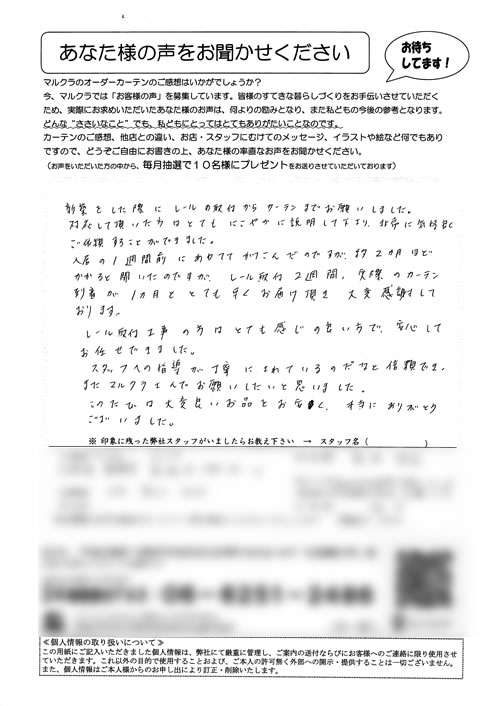 あなた様の声をお聞かせください
お待ち
してます!
マルクラのオーダーカーテンのご感想はいかがでしょうか?
今、マルクラでは「お客様の声」を募集しています。皆様のすてきな暮らしづくりをお手伝いさせていただく
ため、実際にお求めいただいたあなた様のお声は、何よりの励みとなり、また私どもの今後の参考となります。
どんな“ささいなこと”でも、私どもにとってはとてもありがたいことなのです。
カーテンのご感想、他店との違い、お店・スタッフにむけてのメッセージ、イラストや絵など何でもあり
ですので、どうぞご自由にお書きの上、あなた様の率直なお声をお聞かせください。
(お声をいただいた方の中から、毎月抽選で10名様にプレゼントをお送りさせていただいております)
新築をした際にレールの取付からカーテンまでお願いしました。
対応して頂いた方はとてもにこやかに説明して下さり、非常に気持良く
ご依頼することができました。
入居の1週間前にあわてて がけこんだのですが、約2カ月ほど
かかると聞いたのですが、レール取付2週間、実際のカーテン
到着が1カ月ととても早くお届け頂き 大変感謝して
おります。
レール取付工事の方はとても感じの良い方で、安心して
お任せできました。
スタッフへの指導が丁寧にされているのだなと信頼でき、
またマルクラさんでお願いしたいと思いました。
このたびは大変良いお品とお安く、本当にありがとう
ございました。
※ 印象に残った弊社スタッフがいましたらお教え下さい → スタッフ名( )
≪個人情報の取り扱いについて≫
この用紙にご記入いただきました個人情報は、弊社にて厳重に管理し、ご案内の送付ならびにお客様へのご連絡に限り使用させ
ていただきます。これ以外の目的で使用することおよび、ご本人の許可無く外部への開示・提供することは一切ございません。
また、個人情報はご本人様からのお申し出により訂正・削除いたします。